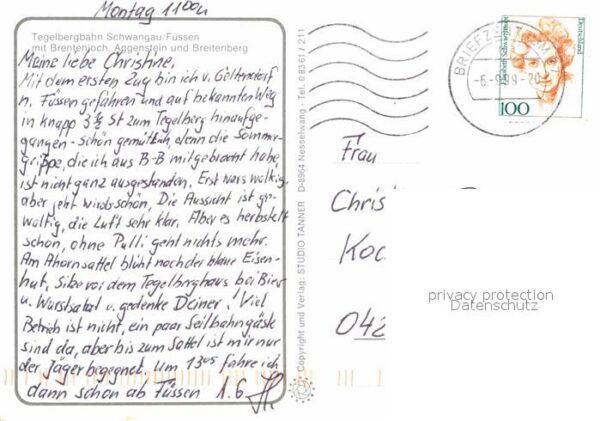 Montag 11⁰⁰u
Tegelbergbahn Schwangau/Füssen
mit Brentenjoch, Aggenstein und Breitenberg
Meine liebe Christine.
Mit dem ersten Zug bin ich v. Geltendorf
n. Füssen gefahren und auf bekannten Weg
in knapp 3½ St zum Tegelberg hinaufge-
gangen - schön gemütlich, denn die Sommer-
grippe, die ich aus B-B mitgebracht habe,
ist nicht ganz ausgestanden. Erst wars wolkig.
aber jetzt wirds schön. Die Aussicht ist ge-
waltig, die Luft sehr klar. Aber es herbstelt
schon, ohne Pulli geht nichts mehr.
Am Ahornsattel blüht noch der blaue Eisen-
hut. Sitze vor dem Tegelberghaus bei Bier
u. Wurstsalat u. gedenke Deiner! Viel
Betrieb ist nicht, ein paar Seilbahngäste
sind da, aber bis zum Sattel ist mir nur
der Jäger begegnet. Um 13⁰⁵ fahre ich
dann schon ab Füssen
Copyright und Verlag: STUDIO TANNER D-8964 Nesselwang - Tel. 08361/211
BRIEFZ
-6.-9
-20
Deutschland
100
Frau
Christ
Koc
042
privacy protection
Datenschutz